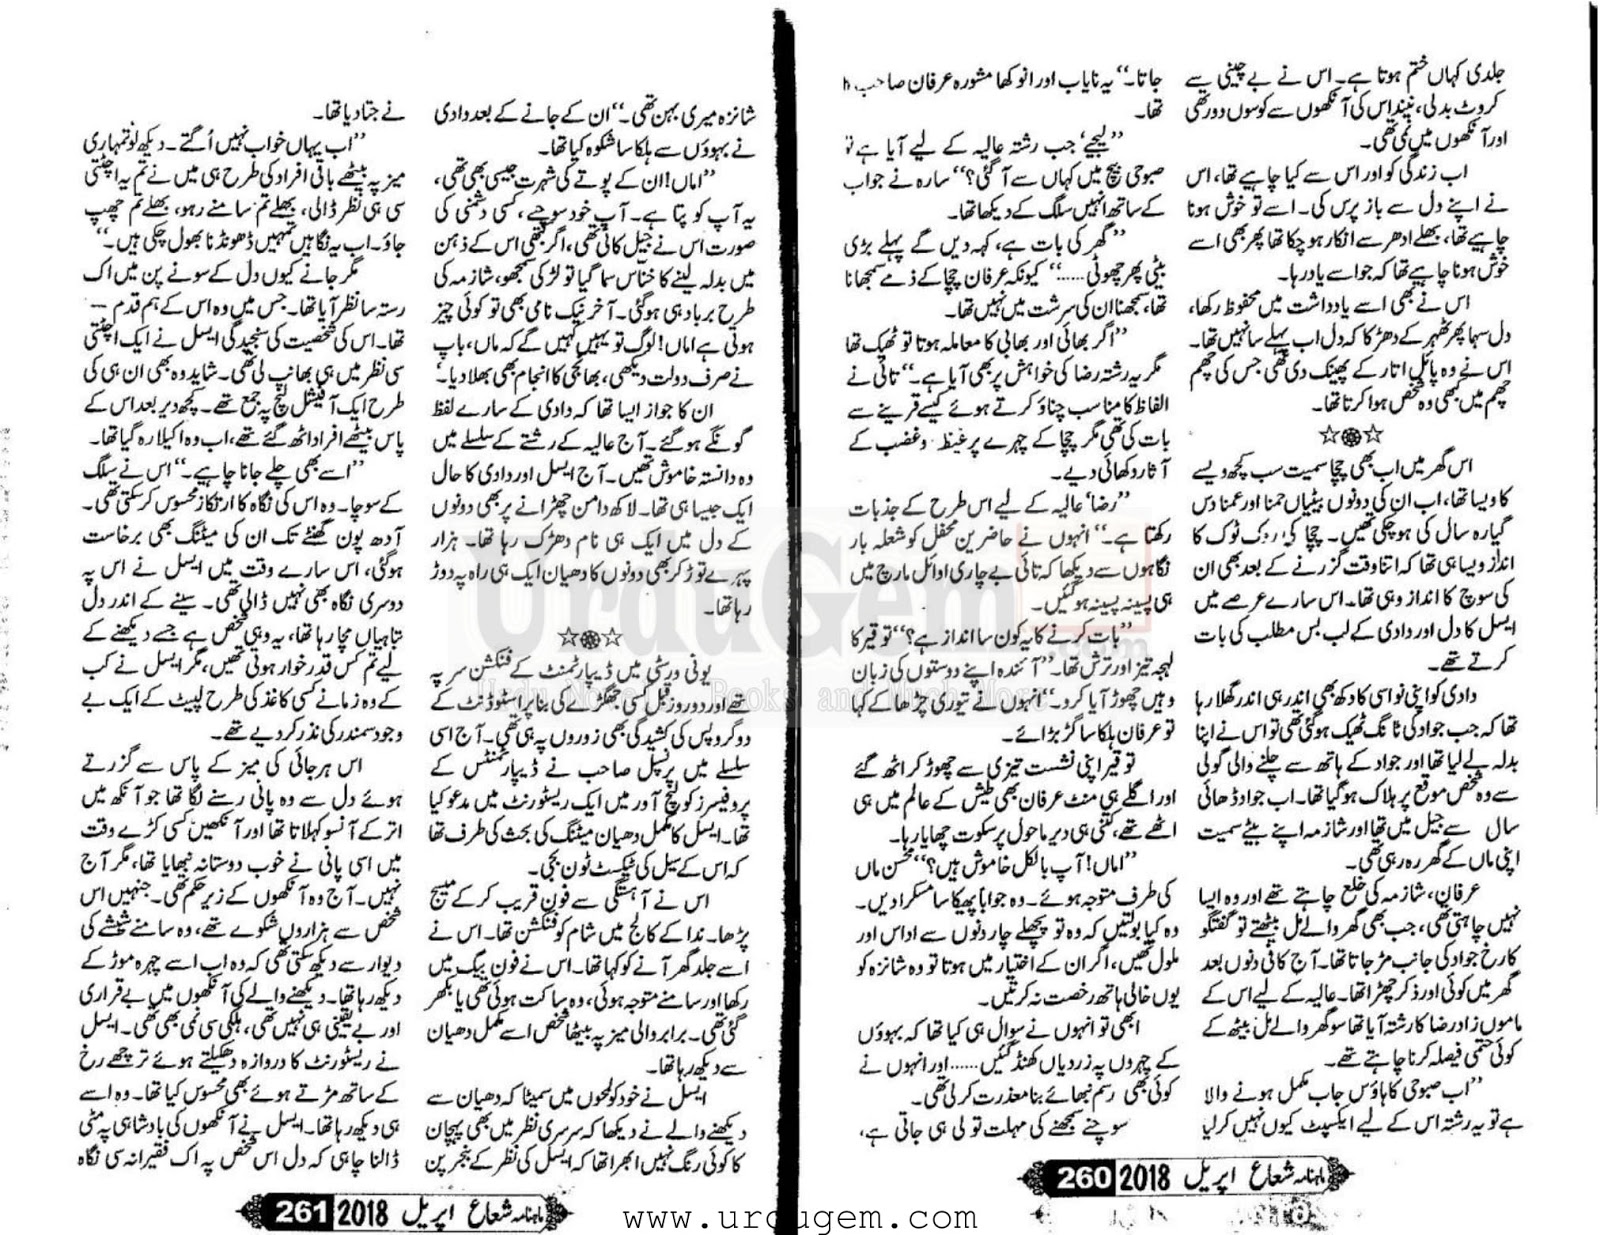 جلدی کہاں ختم ہوتا ہے۔ اس نے بے چینی سے
کروٹ بدلی، نیند اس کی آنکھوں سے کوسوں دور تھی
اور آنکھوں میں نمی تھی۔
اب زندگی کو اور اس سے کیا چاہیے تھا، اس
نے اپنے دل سے باز پرس کی۔ اسے تو خوش ہونا
چاہیے تھا، بھلے ادھر سے انکار ہو چکا تھا پھر بھی اسے
خوش ہونا چاہیے تھا کہ جو اسے یاد رہا۔
اس نے بھی اسے یادداشت میں محفوظ رکھا،
دل سہما پھر ٹھہر کے دھڑکا کہ دل اب پہلے سا نہیں تھا۔
اس نے وہ پائل اتار کے پھینک دی تھی جس کی چھم
چھم میں کبھی وہ شخص ہوا کرتا تھا۔
اس گھر میں اب بھی چچا سمیت سب کچھ ویسے
کا ویسا تھا، اب ان کی دونوں بیٹیاں حمنا اور عمنا دس
گیارہ سال کی ہو چکی تھیں۔ چچا کی روک ٹوک کا
انداز ویسا ہی تھا کہ اتنا وقت گزرنے کے بعد بھی ان
کی سوچ کا انداز وہی تھا۔ اس سارے عرصے میں
ایسل کا دل اور دادی کے لب بس مطلب کی بات
کرتے تھے۔
دادی کو اپنی نواسی کا دکھ بھی اندر ہی اندر گھلا رہا
تھا کہ جب جواد کی ٹانگ ٹھیک ہو گئی تھی تو اس نے اپنا
بدلہ لے لیا تھا اور جواد کے ہاتھ سے چلنے والی گولی
سے وہ شخص موقع پر ہلاک ہو گیا تھا۔ اب جواد ڈھائی
سال سے جیل میں تھا اور شازمہ اپنے بیٹے سمیت
اپنی ماں کے گھر رہ رہی تھی۔
عرفان، شازمہ کی خلع چاہتے تھے اور وہ ایسا
نہیں چاہتی تھی، جب بھی گھر والے مل بیٹھتے تو گفتگو
کا رخ جواد کی جانب مڑ جاتا تھا۔ آج کافی دنوں بعد
گھر میں کوئی اور ذکر چھڑا تھا۔ عالیہ کے لیے اس کے
ماموں زاد رضا کا رشتہ آیا تھا سو گھر والے مل بیٹھ کے
کوئی حتمی فیصلہ کرنا چاہتے تھے۔
”اب صبوحی کا ہاؤس جاب مکمل ہونے والا
ہے تو یہ رشتہ اس کے لیے ایکسپٹ کیوں نہیں کر لیا
جاتا۔“ یہ نایاب اور انوکھا مشورہ عرفان صاحب
تھا۔
”لیجیے، جب رشتہ عالیہ کے لیے آیا ہے
صبوحی بیچ میں کہاں سے آ گئی؟“ سارہ نے جواب
کے ساتھ انہیں سلگ کے دیکھا تھا۔
”گھر کی بات ہے، کہہ دیں گے پہلے بڑی
بیٹی پھر چھوٹی......“ کیونکہ عرفان چچا کے ذمے سمجھانا
تھا، سمجھنا ان کی سرشت میں نہیں تھا۔
”اگر بھائی اور بھابی کا معاملہ ہوتا تو ٹھیک تھا
مگر یہ رشتہ رضا کی خواہش پر بھی آیا ہے۔“ تائی نے
الفاظ کا مناسب چناؤ کرتے ہوئے کیسے قرینے سے
بات کی تھی مگر چچا کے چہرے پر غیظ و غضب کے
آثار دکھائی دیے۔
”رضا، عالیہ کے لیے اس طرح کے جذبات
رکھتا ہے۔“ انہوں نے حاضرین محفل کو شعلہ بار
نگاہوں سے دیکھا کہ تائی بے چاری اوائل مارچ میں
ہی پسینہ پسینہ ہو گئیں۔
”بات کرنے کا یہ کون سا انداز ہے؟“ توقیر کا
لہجہ تیز اور ترش تھا۔ ”آئندہ اپنے دوستوں کی زبان
وہیں چھوڑ آیا کرو۔“ انہوں نے تیوری چڑھا کے کہا
تو عرفان ہلکا سا گڑبڑائے۔
توقیر اپنی نشست تیزی سے چھوڑ کر اٹھ گئے
اور اگلے ہی منٹ عرفان بھی طیش کے عالم میں ہی
اٹھے تھے، کتنی ہی دیر ماحول پر سکوت چھایا رہا۔
”اماں! آپ بالکل خاموش ہیں؟“ محسن ماں
کی طرف متوجہ ہوئے۔ وہ جواباً پھیکا سا مسکرا دیں۔
وہ کیا بولتیں کہ وہ تو پچھلے چار دنوں سے اداس اور
ملول تھیں، اگر ان کے اختیار میں ہوتا تو وہ شانزہ کو
یوں خالی ہاتھ رخصت نہ کرتیں۔
ابھی تو انہوں نے سوال ہی کیا تھا کہ بہوؤں
کے چہروں پہ زردیاں کھنڈ گئیں...... اور انہوں نے
کوئی بھی رسم نبھائے بنا معذرت کر لی تھی۔
سوچنے سمجھنے کی مہلت تو لی ہی جاتی ہے،
ماہنامہ شعاع اپریل 2018 260
شانزہ میری بہن تھی۔“ ان کے جانے کے بعد دادی
نے بہوؤں سے ہلکا سا شکوہ کیا تھا۔
”اماں! ان کے پوتے کی شہرت جیسی بھی تھی،
یہ آپ کو پتا ہے۔ آپ خود سوچیے، کسی دشمنی کی
صورت اس نے جیل کاٹی تھی، اگر کبھی اس کے ذہن
میں بدلہ لینے کا خناس سما گیا تو لڑکی سمجھو، شازمہ کی
طرح برباد ہی ہو گئی۔ آخر نیک نامی بھی تو کوئی چیز
ہوتی ہے اماں! لوگ تو یہیں کہیں گے کہ ماں، باپ
نے صرف دولت دیکھی، بھانجی کا انجام بھی بھلا دیا۔“
ان کا جواز ایسا تھا کہ دادی کے سارے لفظ
گونگے ہو گئے۔ آج عالیہ کے رشتے کے سلسلے میں
وہ دانستہ خاموش تھیں۔ آج ایسل اور دادی کا حال
ایک جیسا ہی تھا۔ لاکھ دامن چھڑانے پر بھی دونوں
کے دل میں ایک ہی نام دھڑک رہا تھا۔ ہزار
پہرے توڑ کر بھی دونوں کا دھیان ایک ہی راہ پہ دوڑ
رہا تھا۔
یونی ورسٹی میں ڈیپارٹمنٹ کے فنکشن سر پہ
تھے اور دو روز قبل کسی جھگڑے کی بنا پر اسٹوڈنٹ کے
دو گروپس کی کشیدگی بھی زوروں پہ ہی تھی۔ آج اسی
سلسلے میں پرنسپل صاحب نے ڈیپارٹمنٹس کے
پروفیسرز کو لنچ آور میں ایک ریسٹورنٹ میں مدعو کیا
تھا۔ ایسل کا مکمل دھیان میٹنگ کی بحث کی طرف تھا
کہ اس کے سیل کی ٹیکسٹ ٹون بجی۔
اس نے آہستگی سے فون قریب کر کے میسج
پڑھا۔ ندا کے کالج میں شام کو فنکشن تھا۔ اس نے
اسے جلد گھر آنے کو کہا تھا۔ اس نے فون بیگ میں
رکھا اور سامنے متوجہ ہوئی، وہ ساکت ہوئی تھی یا بکھر
گئی تھی۔ برابر والی میز پہ بیٹھا شخص اسے مکمل دھیان
سے دیکھ رہا تھا۔
ایسل نے خود کو لمحوں میں سمیٹا کہ دھیان سے
دیکھنے والے نے دیکھا کہ سرسری نظر میں بھی پہچان
کا کوئی رنگ نہیں ابھرا تھا کہ ایسل کی نظر کے بنجر پن
نے جتا دیا تھا۔
”اب یہاں خواب نہیں اُگتے۔ دیکھ لو تمہاری
میز پہ بیٹھے باقی افراد کی طرح ہی میں نے تم پہ اچٹتی
سی ہی نظر ڈالی، بھلے تم سامنے رہو، بھلے تم چھپ
جاؤ۔ اب یہ نگاہیں تمہیں ڈھونڈنا بھول چکی ہیں۔“
مگر جانے کیوں دل کے سونے پن میں اک
رستہ سا نظر آیا تھا۔ جس میں وہ اس کے ہم قدم
تھا۔ اس کی شخصیت کی سنجیدگی ایسل نے ایک اچٹتی
سی نظر میں ہی بھانپ لی تھی۔ شاید وہ بھی ان ہی کی
طرح ایک آفیشل لنچ پہ جمع تھے۔ کچھ دیر بعد اس کے
پاس بیٹھے افراد اٹھ گئے تھے، اب وہ اکیلا رہ گیا تھا۔
”اسے بھی چلے جانا چاہیے۔“ اس نے سلگ
کے سوچا۔ وہ اس کی نگاہ کا ارتکاز محسوس کر سکتی تھی۔
آدھ پون گھنٹے تک ان کی میٹنگ بھی برخاست
ہو گئی، اس سارے وقت میں ایسل نے اس پہ
دوسری نگاہ بھی نہیں ڈالی تھی۔ سینے کے اندر دل
تباہیاں مچا رہا تھا، یہ وہی شخص ہے جسے دیکھنے کے
لیے تم کس قدر خوار ہوئی تھیں، مگر ایسل نے کب
کے وہ زمانے کسی کاغذ کی طرح لپیٹ کے ایک بے
وجود سمندر کی نذر کر دیے تھے۔
اس ہرجائی کی میز کے پاس سے گزرتے
ہوئے دل سے وہ پانی رسنے لگا تھا جو آنکھ میں
اتر کے آنسو کہلاتا تھا اور آنکھیں کسی کڑے وقت
میں اسی پانی نے خوب دوستانہ نبھایا تھا، مگر آج
نہیں۔ آج وہ آنکھوں کے زیر حکم تھی۔ جنہیں اس
شخص سے ہزاروں شکوے تھے، وہ سامنے شیشے کی
دیوار سے دیکھ سکتی تھی کہ وہ اب اسے چہرہ موڑ کے
دیکھ رہا تھا۔ دیکھنے والے کی آنکھوں میں بے قراری
اور بے یقینی ہی نہیں تھی، ہلکی سی نمی بھی تھی۔ ایسل
نے ریسٹورنٹ کا دروازہ دھکیلتے ہوئے ترچھے رخ
کے ساتھ مڑتے ہوئے بھی محسوس کیا تھا۔ وہ اسے
ہی دیکھ رہا تھا۔ ایسل نے آنکھوں کی بادشاہی پہ مٹی
ڈالنا چاہی کہ دل اس شخص پہ اک فقیرانہ سی نگاہ
ماہنامہ شعاع اپریل 2018 261
UrduGem.com
Urdu Novels, Books and Much More
www.urdugem.com